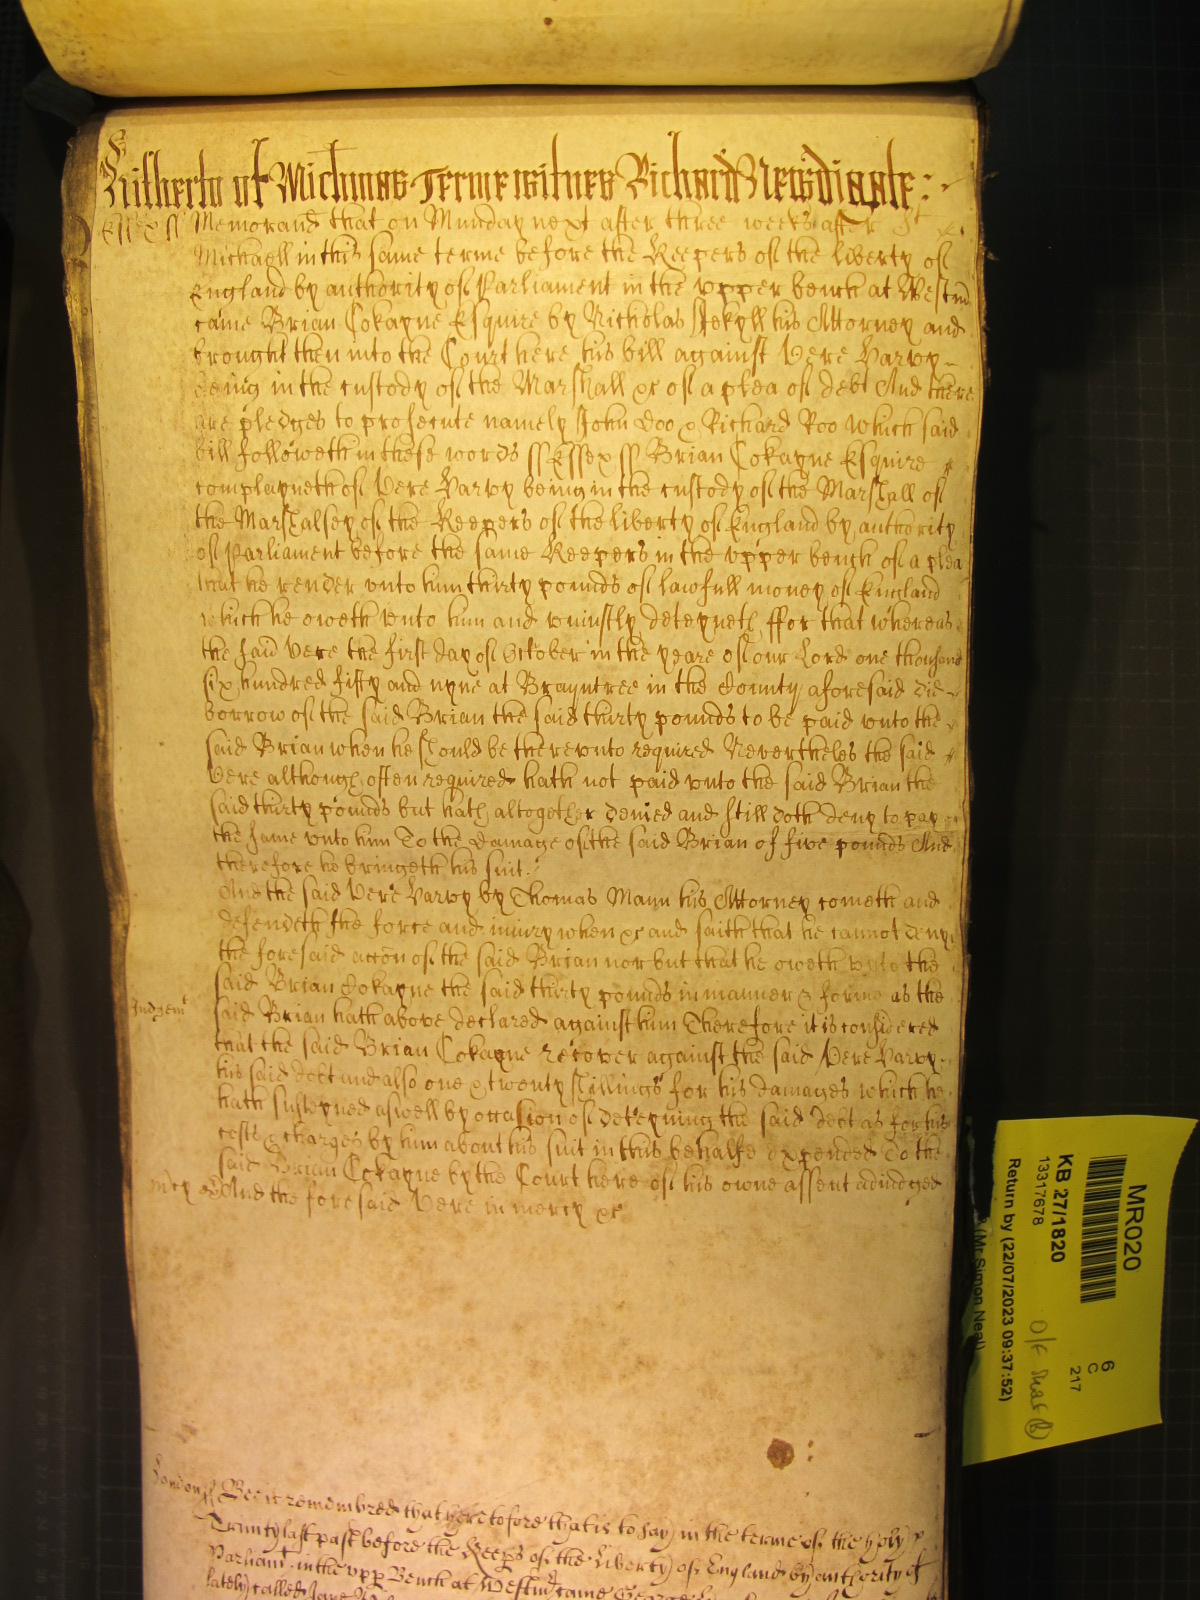 Hitherto of Michmas Terme witnes Richard Newdigate :
Essex ss Memorand that on Munday next after three weekes after St
Michaell in this same terme before the Keepers of the liberty of
England by authority of Parliament in the vpper bench at Westm
came Brian Cokayne Esquire by Nicholas Jekyll his Attorney and
brought then into the Court here his bill against Vere Harvy
being in the custody of the Marshall xc of a plea of debt And there
are pledges to prosecute namely John Doo & Richard Roo which said
bill followeth in these words ss Essex ss Brian Cokayne Esquire
complayneth of Vere Harvy being in the custody of the Marshall of
the Marshalsey of the Keepers of the liberty of England by authority
of Parliament before the same Keepers in the vpper bench of a plea
that he render vnto him thirty pounds of lawfull money of England
which he oweth vnto him and vniustly deteyneth ffor that whereas
the said Vere the first day of October in the yeare of our Lord one thousand
six hundred fifty and nyne at Brayntree in the County aforesaid did
borrow of the said Brian the said thirty pounds to be paid vnto the
said Brian when he should be therevnto required Neverthelès the said
Vere although often required hath not paid vnto the said Brian the
said thirty pounds but hath altogether denied and still doth deny to pay
the same vnto him To the damage of the said Brian of five pounds And
therefore he bringeth his suit :
And the said Vere Harvy by Thomas Mann his Attorney cometh and
defendeth the force and iniury when xc and saith that he cannot deny
the foresaid accon of the said Brian nor but that he oweth vnto the
said Brian Cokayne the said thirty pounds in manner & forme as the
Judgemt said Brian hath above declared against him Therefore it is considered
that the said Brian Cokayne recover against the said Vere Harvy
his said debt and also one & twenty shillings for his damages which he
hath susteyned aswell by occasion of deteyning the said debt as for his
costs & charges by him about his suit in this behalfe expended To the
said Brian Cokayne by the Court here of his owne assent adiudged
mcy And the foresaid Vere in mercy xc
London ss Bee it remembred that heretofore that is to say in the terme of the holy
Trinity last past before the Keeps of the Liberty of England by authority of
Parliamt in the vpp Bench at Westm came George
lately called Jane
MR020
KB 27/1820
13317678
Return by (22/07/2023 09:37:52)
(Mr Simon Neal)
6
C
217
O/F